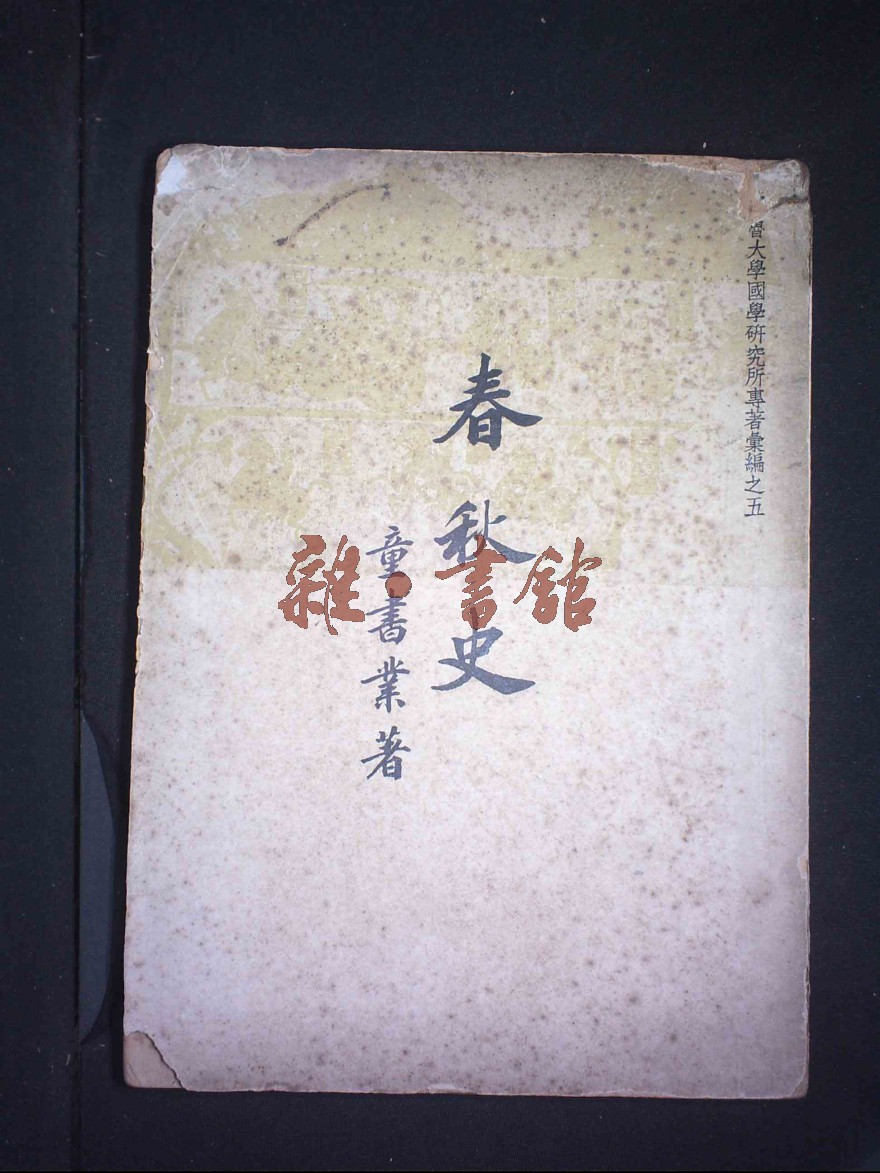 魯大學國學研究所專著彙編之五
春秋史
童書業著
雜·書館